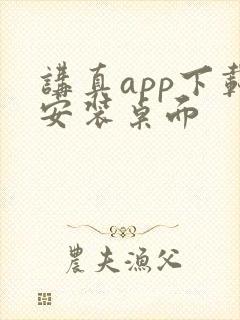 講真app下載
安裝桌面
農夫漁父